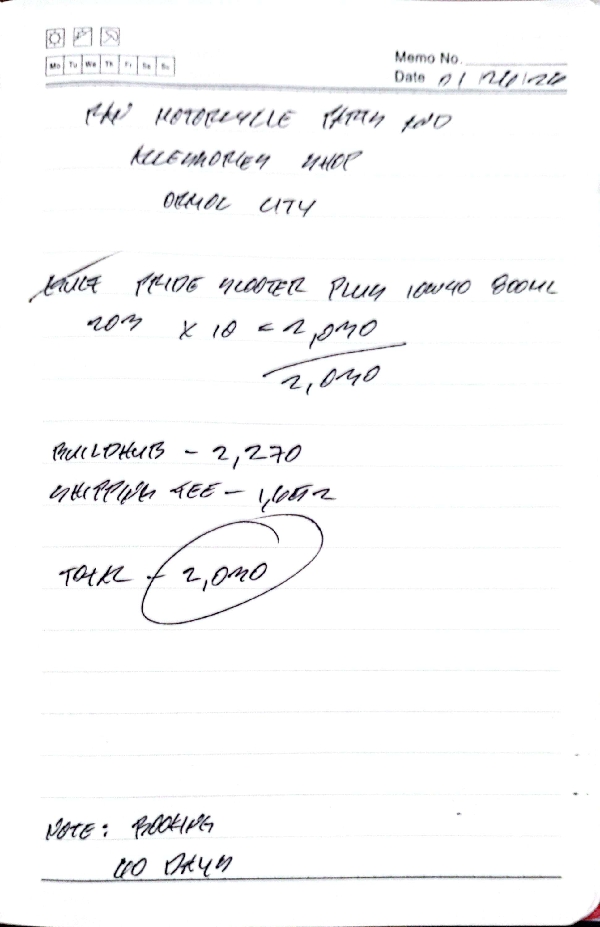 Mo Tu We Th Fr Sa Su
Memo No.
Date 01/26/26
MOTORCYCLE PARTS AND
ACCESSORIES SHOP
ORMOC CITY
PRIDE SCOOTER PLUS 10W40 800ML
203 x 10 = 2,030
2,030
BUILDHUB - 2,270
SHIPPING FEE - 1,652
TOTAL - 2,030
NOTE: BOOKING
60 DAYS